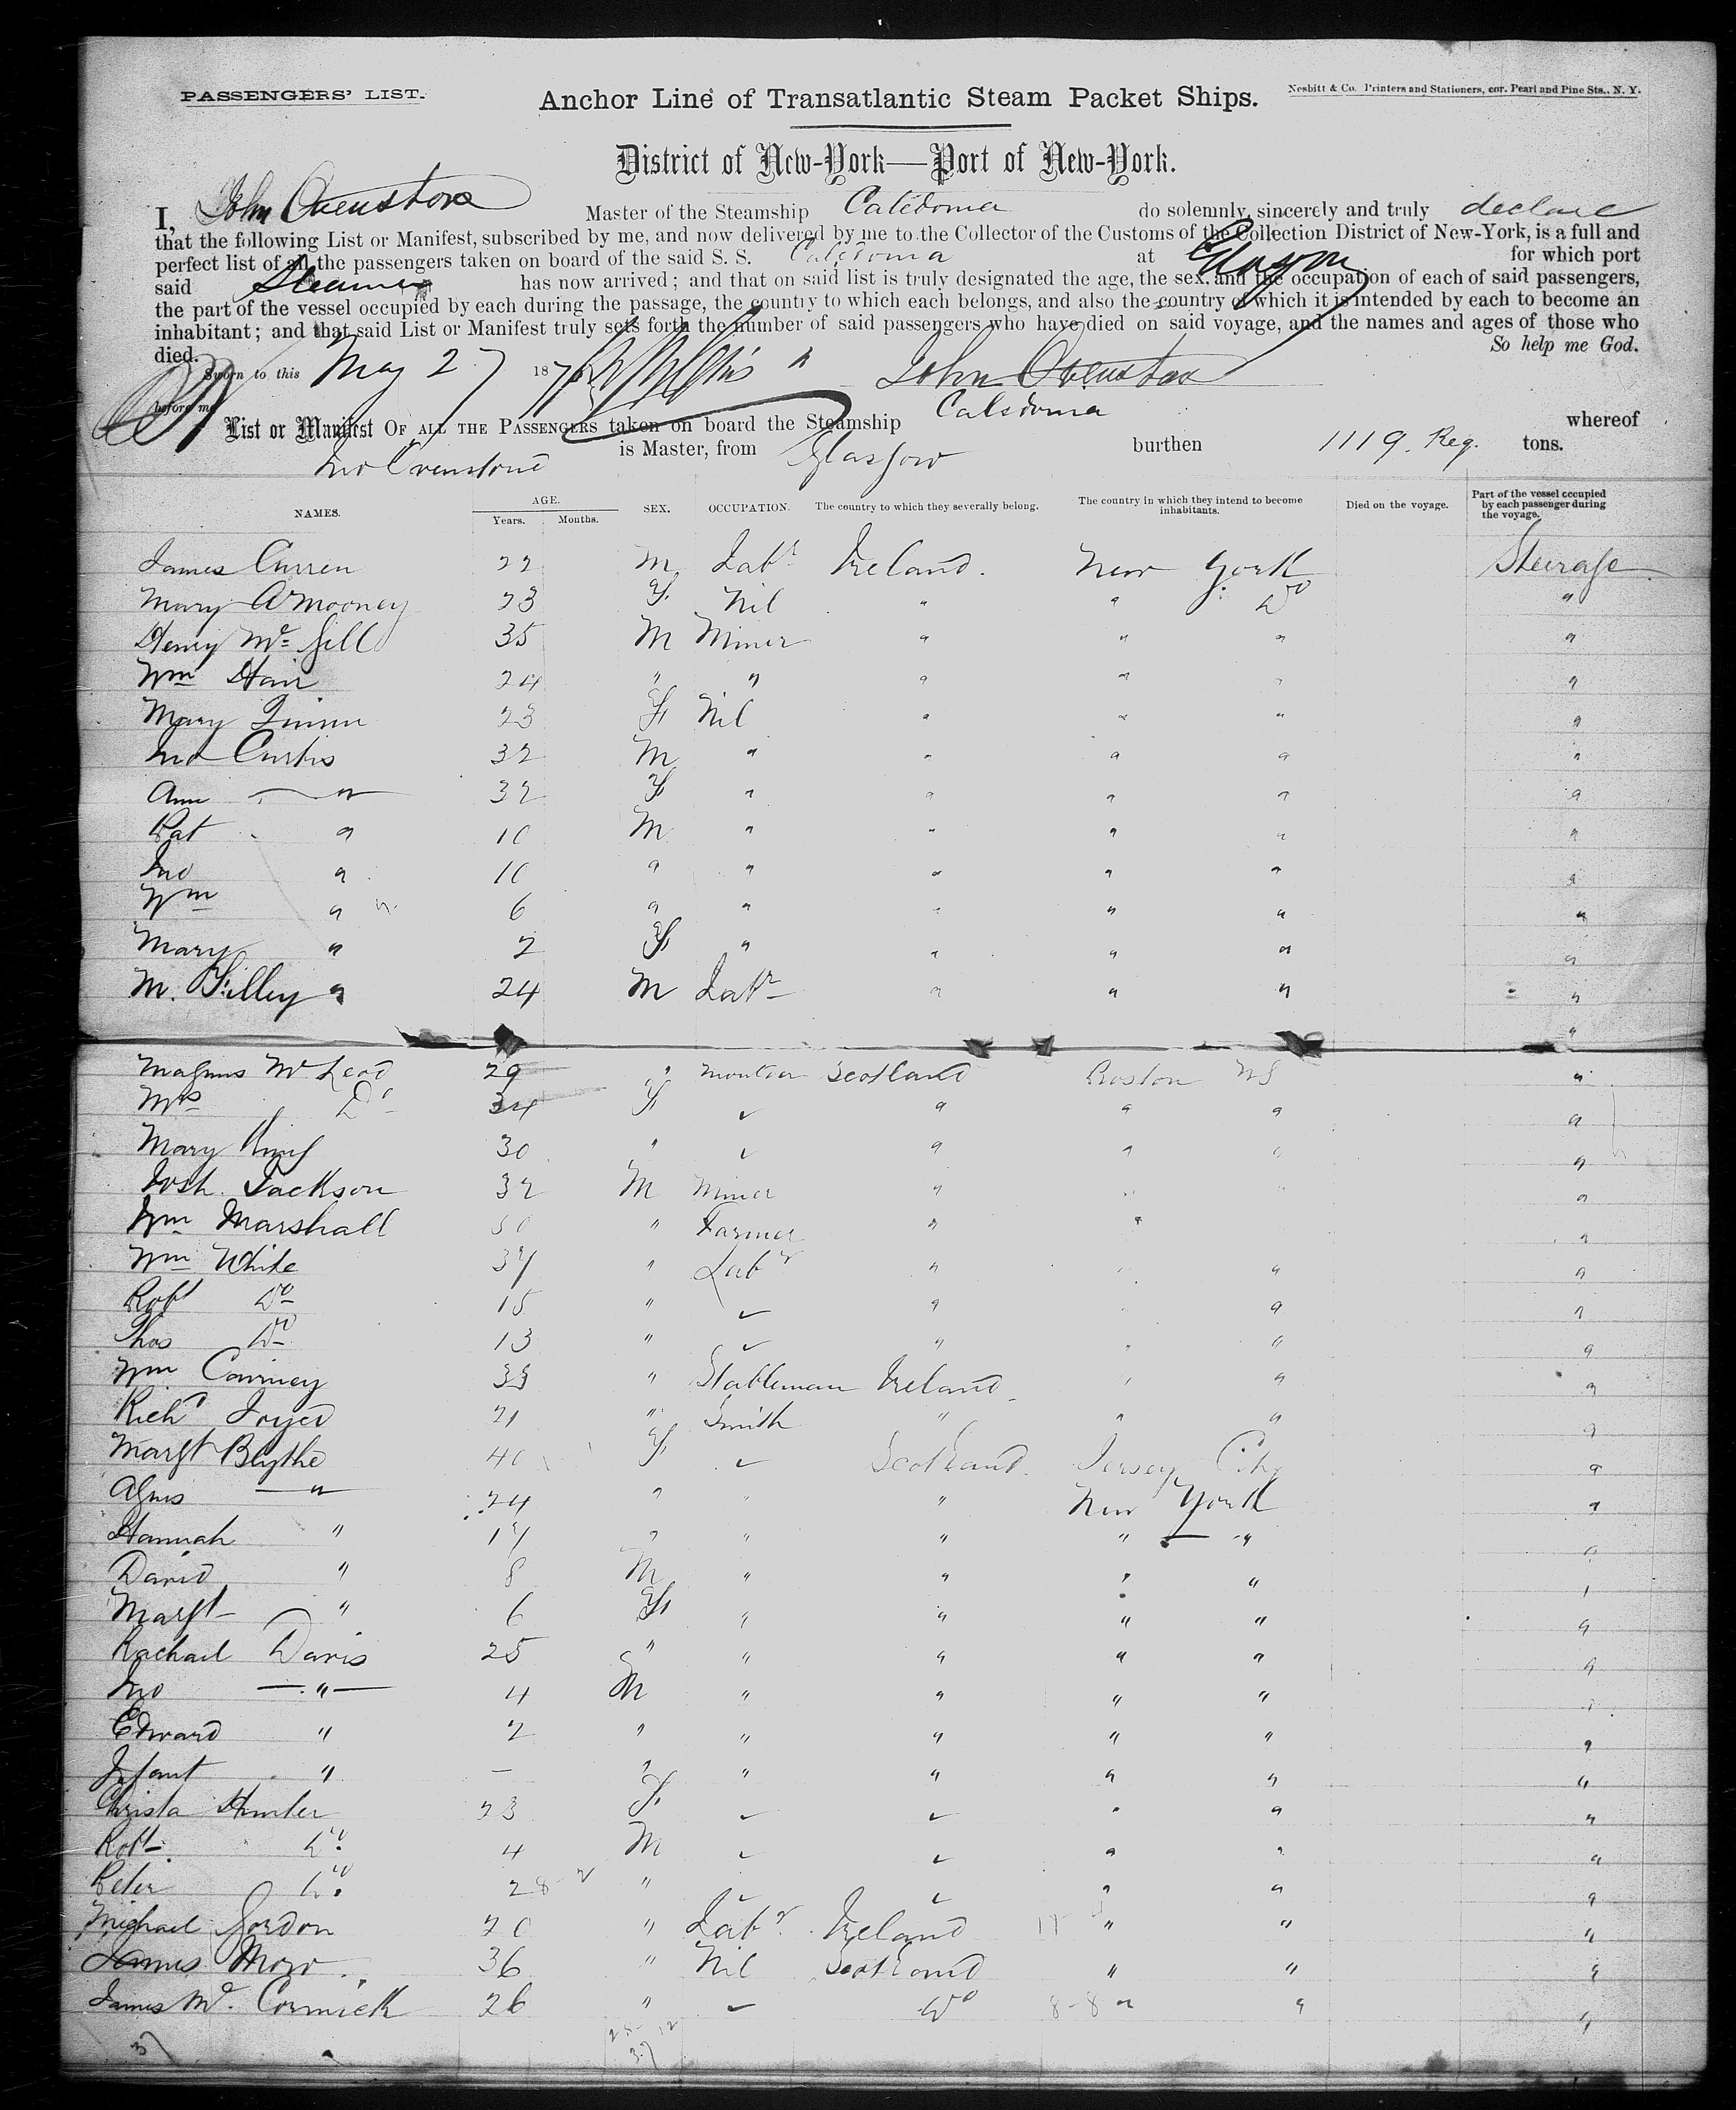 PASSENGERS' LIST.
Anchor Line of Transatlantic Steam Packet Ships.
Nesbitt & Co. Printers and Stationers, cor. Pearl and Pine Sts., N. Y.
District of New-York—Port of New-York.
I, John Ovenstone Master of the Steamship Caledonia do solemnly, sincerely and truly declare
that the following List or Manifest, subscribed by me, and now delivered by me to the Collector of the Customs of the Collection District of New-York, is a full and
perfect list of all the passengers taken on board of the said S. S. Caledonia at Glasgow for which port
said Steamer has now arrived; and that on said list is truly designated the age, the sex, and the occupation of each of said passengers,
the part of the vessel occupied by each during the passage, the country to which each belongs, and also the country of which it is intended by each to become an
inhabitant; and that said List or Manifest truly sets forth the number of said passengers who have died on said voyage, and the names and ages of those who
died. So help me God.
Sworn to this May 27 187 John Ovenstone
before me
List or Manifest OF ALL THE PASSENGERS taken on board the Steamship Caledonia whereof
Jno Ovenstone is Master, from Glasgow burthen 1119. Reg. tons.
NAMES. AGE. Years. Months. SEX. OCCUPATION. The country to which they severally belong. The country in which they intend to become inhabitants. Died on the voyage. Part of the vessel occupied by each passenger during the voyage.
James Curren 22 M Labr Ireland. New York Steerage
Mary A Mooney 23 F. Nil " " Do "
Henry Mc Gill 35 M Miner " " " "
Wm Hair 24 " " " " " "
Mary Quinn 23 F Nil " " " "
Jno Curtis 32 M " " " " "
Ann " 32 F " " " " "
Pat " 10 M " " " " "
Jno " 10 " " " " " "
Wm " 6 " " " " " "
Mary " 2 F " " " " "
M. Filley " 24 M Labr " " " "
"
Magnus McLeod 29 " Scotland Boston "
Mrs Do 34 F " " " "
Mary King 30 " " " " "
Josh. Jackson 32 M Miner " " "
Wm Marshall 30 " Farmer " " "
Wm White 37 " Labr " " " "
Robt Do 15 " " " "
Thos Do 13 " " " " "
Wm 33 " Stableman Ireland " " "
Richd Joyce 21 " Smith " " " "
Margt Blythe 40 F Scotland. Jersey City "
Agnes " 24 " " " New York "
Hannah " 17 " " " " " "
David " 8 M " " " " "
Margt " 6 F " " " " "
Rachael Davis 25 " " " " " "
Jno " 4 M " " " " "
Edward " 2 " " " " " "
Infant " — " " " " " "
Christa Hunter 23 F. " " "
Robt. Do. 4 M " " "
Peter Do. 28 " " " "
Michael Gordon 20 " Labr. Ireland " " "
James Moir 36 " Nil Scotland " " "
James Mc. Cormick 26 " Do 8-8 " " "
37